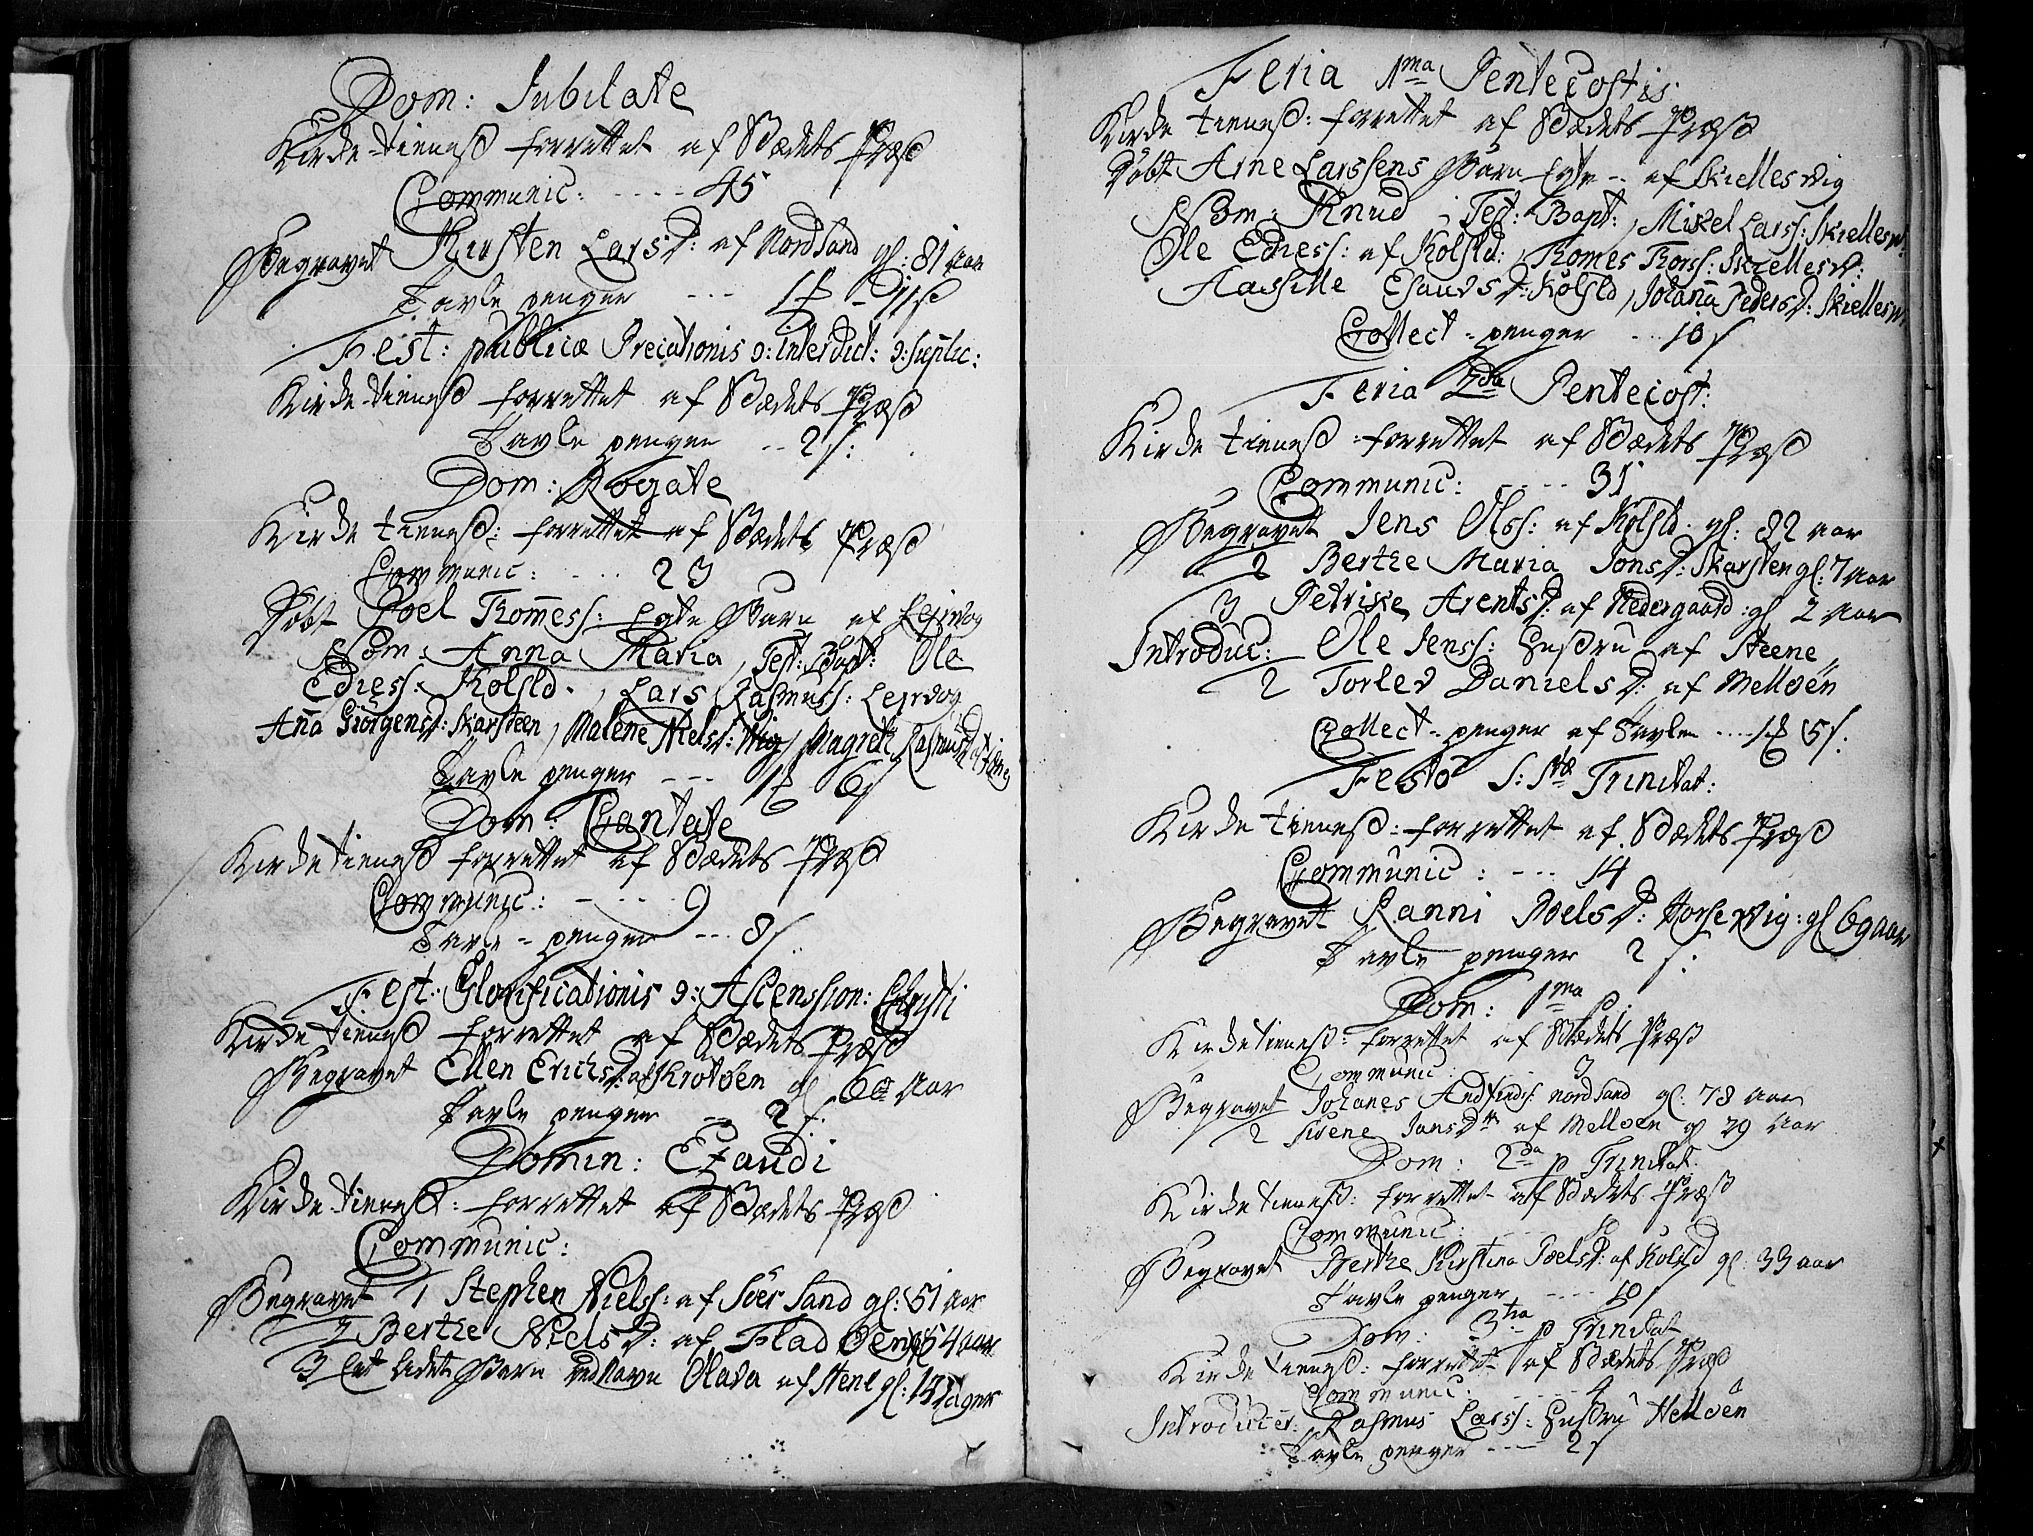 Dom: Jubilate
Kirke-tienest forrettet af Stædets Præst
Communic: ---- 45
Begravet Kirsten Larsd: af Nordsand gl: 81 aar
Tavle penger --- 1
Fest: publicæ Precationis
Kirke-tienest forrettet af Stædets Præst
Tavle penger -- 2 s:
Dom: Rogate
Kirke tienest: forrettet af Stædets Præst
Communic: ---- 23
Døbt Poel Thomess: Egte Barn af Leirvog
Nom: Anna Maria, Test: Bapt: Ole
Ediess: Kolsld., Lars Rasmuss: Leirvog
Aña Giörgensd: Skarsteen, Malene Nielsd: Magrete
Tavle penger --- 6 s
Dom: Cantate
Kirke tienest forrettet af Stædets Præst
Communic: ---- 9
Tavle-penger --- 8 s.
Fest: Glorificationis ɔ: Ascension: Christi
Kirke tienest forrettet af Stædets Præst
Begravet Ellen Erichsd: af gl 60 Aar
Tavle penger -- 2 s.
Domin: Exaudi
Kirke-tienest: forrettet af Stædets Præst
Communic:
Begravet 1 Stephen Nielss: af Sör Sand gl: 51 aar
2 Berthe Nielsd: af Flad Öen gl 54 aar
3 Barn ved Navn Olava af Stene gl: Dager
Feria 1ma Pentecostis
Kirke tienest: forrettet af Stædets Præst
Döbt Arne Larssens Barn Egte -- af Skiellesvig
Nom: Knud, Test: Bapt: Mikel Larss: Skiellesv:
Ole Ediess: af Kolsld:, Thomes Thorss: Skiellesv:
Aasille Esaudsd: Kolsld, Johaña Pedersd: Skiellesv:
Collect-penger -- 10 s
Feria 2da Pentecost:
Kirke tienest: forrettet af Stædets Præst
Communic: ---- 31
Begravet Jens Olss: af Kolsld. gl: 82 aar
2 Berthe Maria Jonsd: Skarsten gl: 7 aar
3 Petrike Arentsd: af Nedergaard: gl 2 Aar
Introduc: Ole Jenss: Hustru af Steene
2 Torlev Danielsd: af Melløen
Collect-penger af Tavlen --- 5 s:
Festo S: Stæ Trinitat:
Kirke tienest: forrettet af Stædets Præst
Communic: --- 14
Begravet Ranni Poelsd: Horservig: gl 69 aar
Tavle penger 2 s:
Dom: 1ma p:
Kirke tienest: forrettet af Stædets Præst
Communic: 3
Begravet Johanes Andfinds: nordsand gl: 78 aar
2 Sivene Jonsdtr af Melløen gl 29 Aar
Dom: 2da p Trinitat.
Kirke tienest: forrettet af Stædets Præst
Communic:
Begravet Berthe Kirstina Poelsd: af Kolsld gl: 33 aar
Tavle penger --- 10 s
Dom: 3tia p Trinitat
Kirke tienest: forrettet af Stædets Præst
Communic:
Introducter: Rasmus Larss: Hustru Melløen
Tavle penger --- 2 s